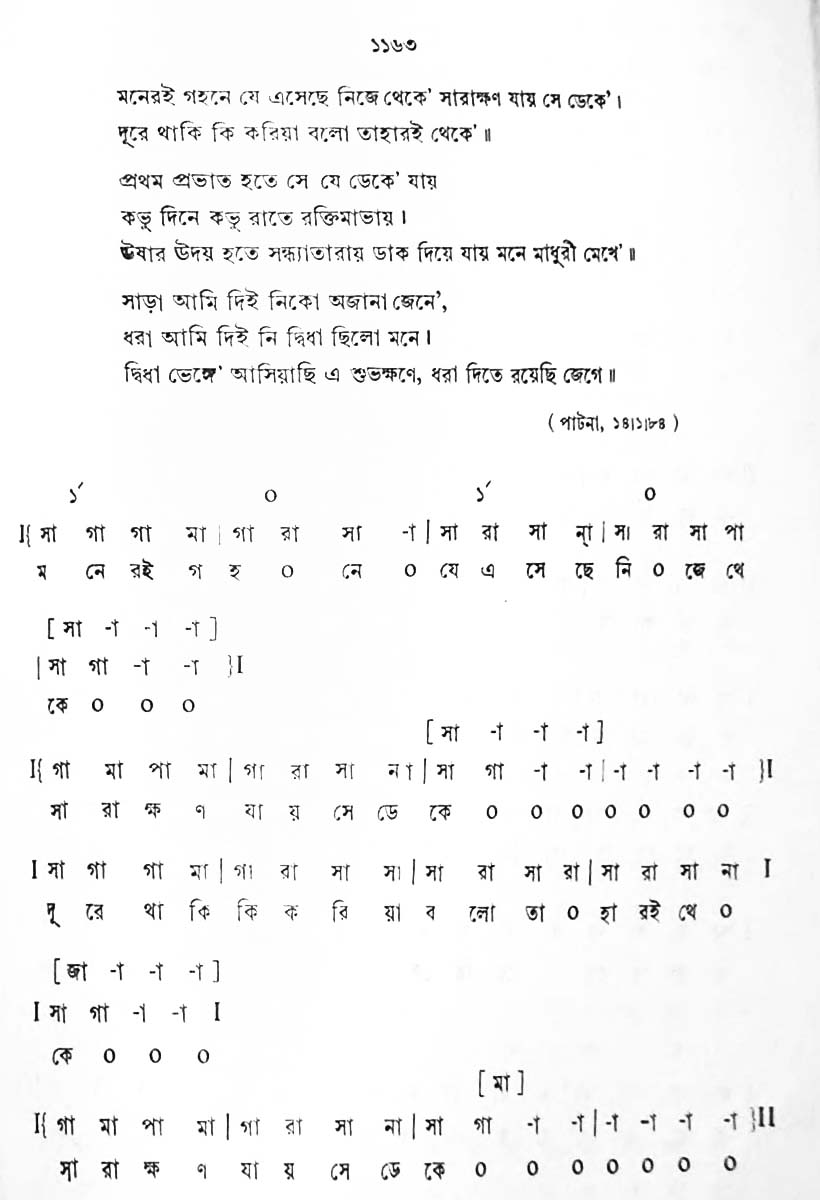 ১১৬৩
মনেরই গহনে যে এসেছে নিজে থেকে' সারাক্ষণ যায় সে ডেকে'।
দূরে থাকি কি করিয়া বলো তাহারই থেকে'॥
প্রথম প্রভাত হতে সে যে ডেকে' যায়
কভু দিনে কভু রাতে রক্তিমাভায়।
ঊষার উদয় হতে সন্ধ্যাতারায় ডাক দিয়ে যায় মনে মাধুরী মেখে'॥
সাড়া আমি দিই নিকো অজানা জেনে',
ধরা আমি দিই নি দ্বিধা ছিলো মনে।
দ্বিধা ভেঙ্গে' আসিয়াছি এ শুভক্ষণে, ধরা দিতে রয়েছি জেগে॥
( পাটনা, ১৪।১।৮৪ )
১´ ০ ১´ ০
I{ সা গা গা মা | গা রা সা -া | সা রা সা ন্া | সা রা সা পা
ম নে রই গ হ ০ নে ০ যে এ সে ছে নি ০ জে থে
[ সা -া -া -া ]
| সা গা -া -া }I
কে ০ ০ ০
[ সা -া -া -া ]
I{ গা মা পা মা | গা রা সা না | সা গা -া -া | -া -া -া -া }I
সা রা ক্ষ ণ যা য় সে ডে কে ০ ০ ০ ০ ০ ০ ০
I সা গা গা মা | গা রা সা সা | সা রা সা রা | সা রা সা না I
দূ রে থা কি কি ক রি য়া ব লো তা ০ হা রই থে ০
[ জ্ঞা -া -া -া ]
I সা গা -া -া I
কে ০ ০ ০
[ মা ]
I{ গা মা পা মা | গা রা সা না | সা গা -া -া | -া -া -া -া }II
সা রা ক্ষ ণ যা য় সে ডে কে ০ ০ ০ ০ ০ ০ ০